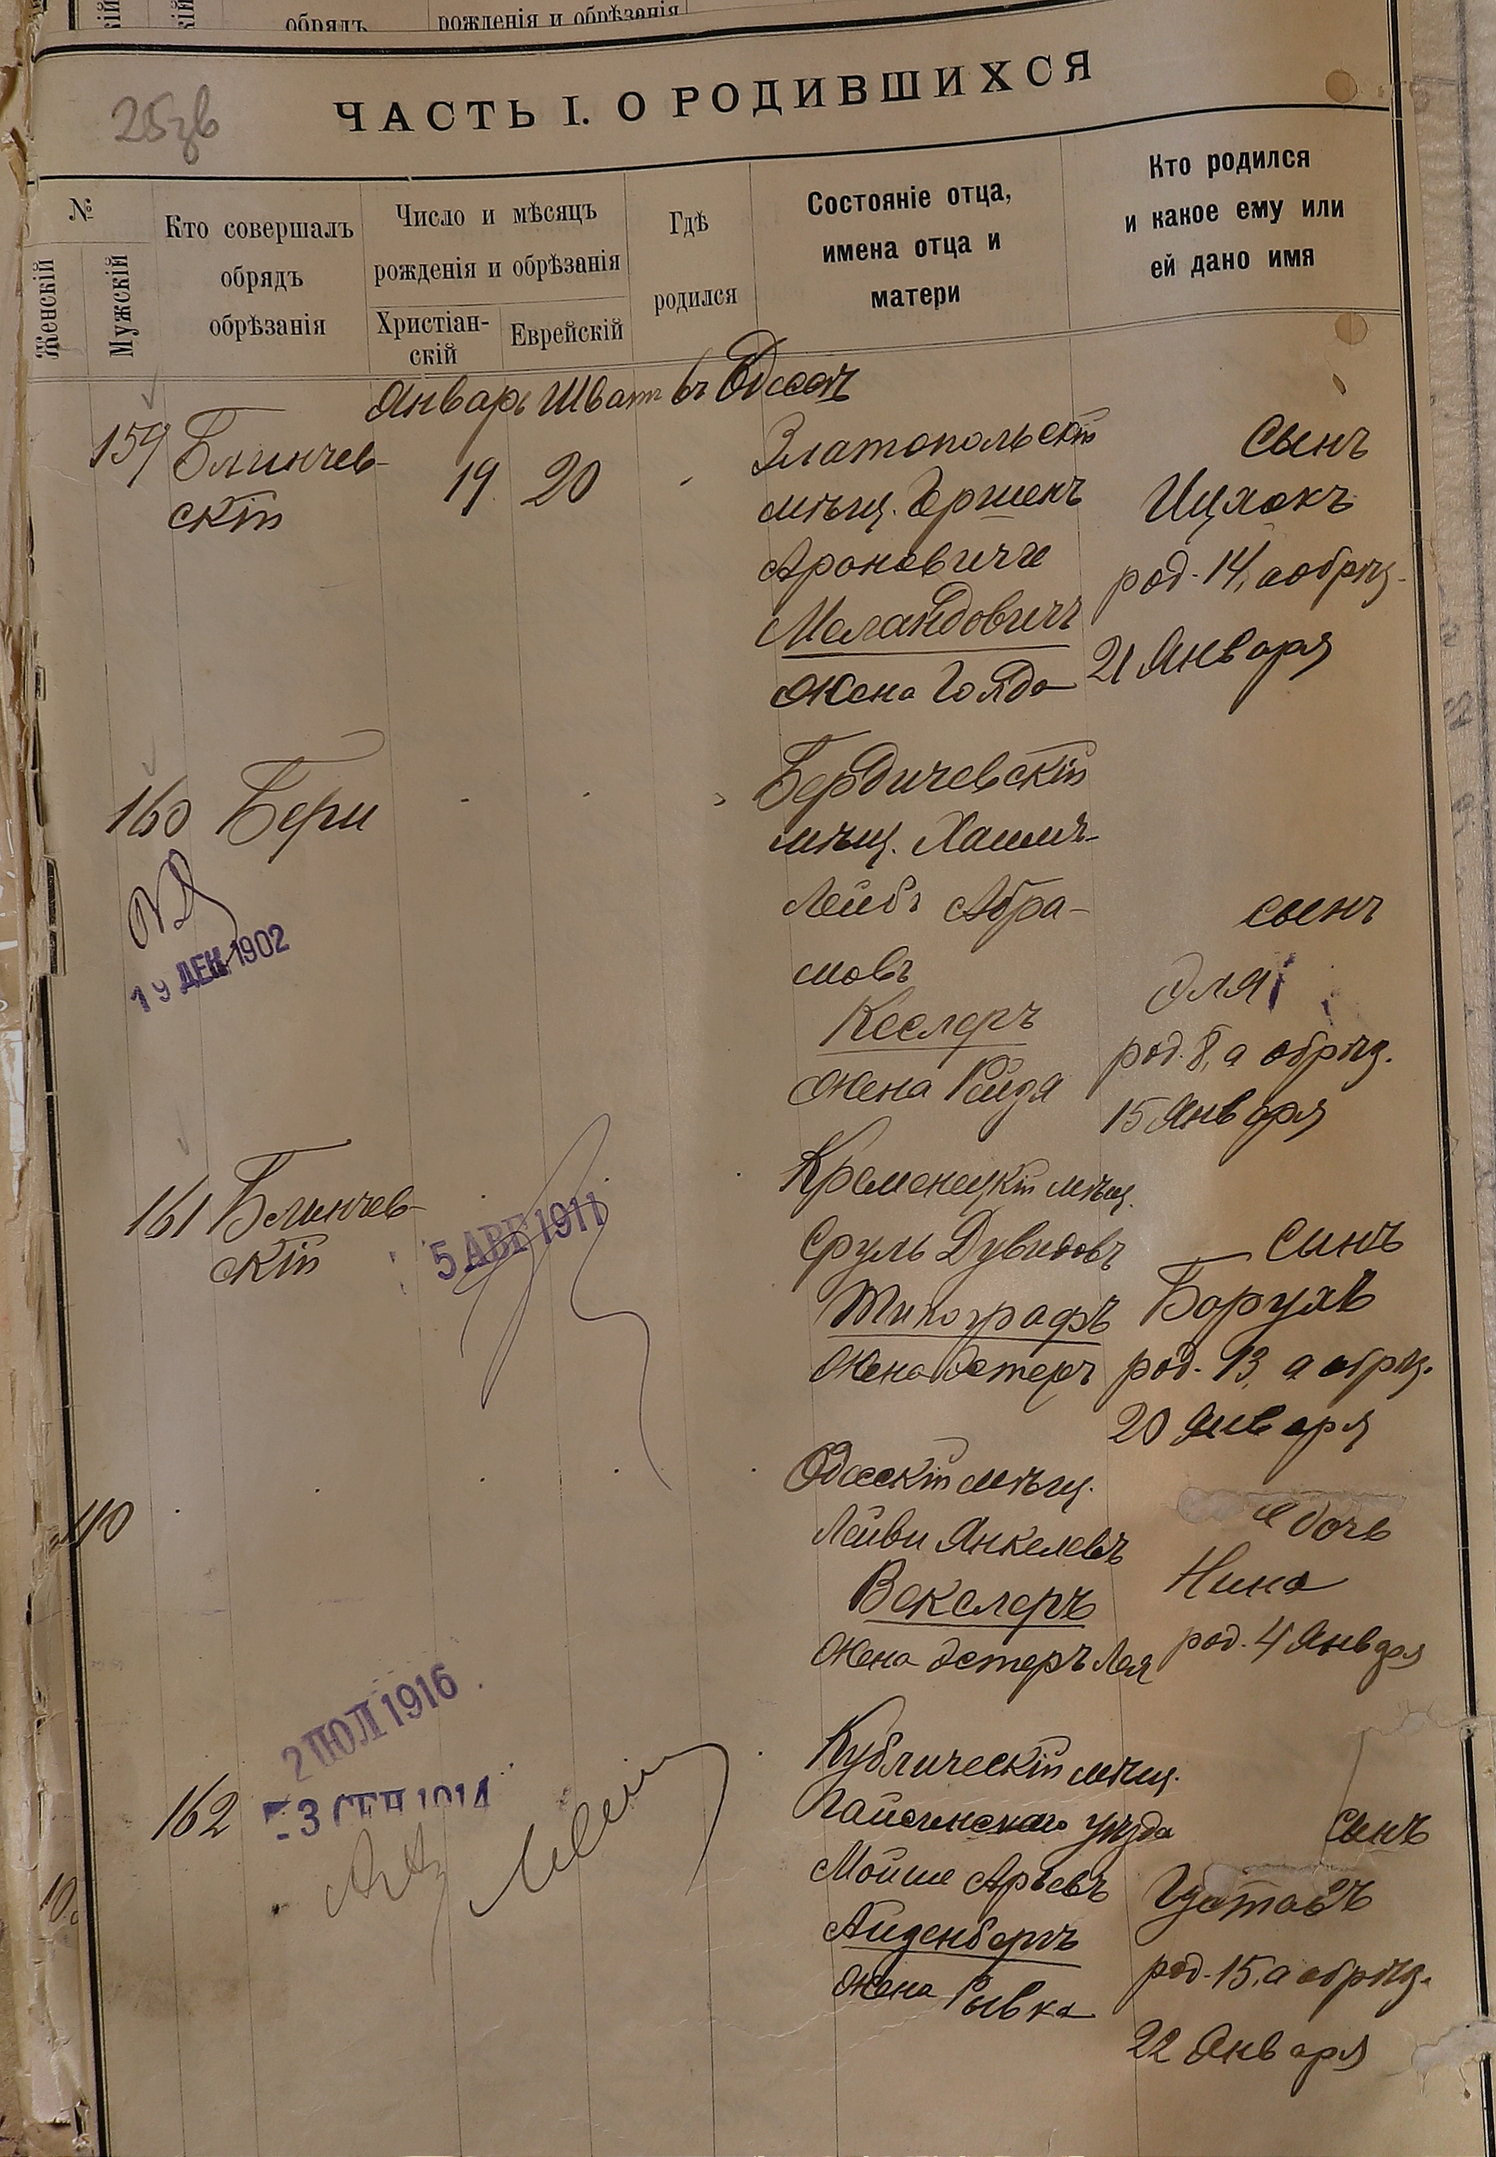 обрядъ
рожденія и обрѣзанія
25зв
ЧАСТЬ I. О РОДИВШИХСЯ
№
Женскій
Мужскій
Кто совершалъ
обрядъ
обрѣзанія
Число и мѣсяцъ
рожденія и обрѣзанія
Христіан-
скій
Еврейскій
Гдѣ
родился
Состояніе отца,
имена отца и
матери
Кто родился
и какое ему или
ей дано имя
Январь Шватъ въ Одессѣ
159
Блинчев-
скій
19
20
Златопольскій
мѣщ. Гершенъ
Ароновичъ
Меландовичъ
жена Голда
сынъ
Ицхокъ
род. 14, а обрѣз.
21 Января
160
Бери
19 ДЕК 1902
Бердичевскій
мѣщ. Хаимъ-
Лейбъ Абра-
мовъ
Кеслеръ
жена Рейзя
сынъ
Эля
род. 8, а обрѣз.
15 Января
161
Блинчев-
скій
5 АВГ 1911
Кременецкій мѣщ.
Сруль Дувидовъ
Типографъ
жена Эстеръ
сынъ
Борухъ
род. 13, а обрѣз.
20 Января
110
Одесскій мѣщ.
Лейви Янкелевъ
Векслеръ
жена Эстеръ Лея
дочь
Нина
род. 4 Января
2 ІЮЛ 1916
162
3 СЕН 1914
Кублическій мѣщ.
Гайсинскаго уѣзда
Мойше Арьевъ
Айзенбергъ
жена Рывка
сынъ
Густавъ
род. 15, а обрѣз.
22 Января